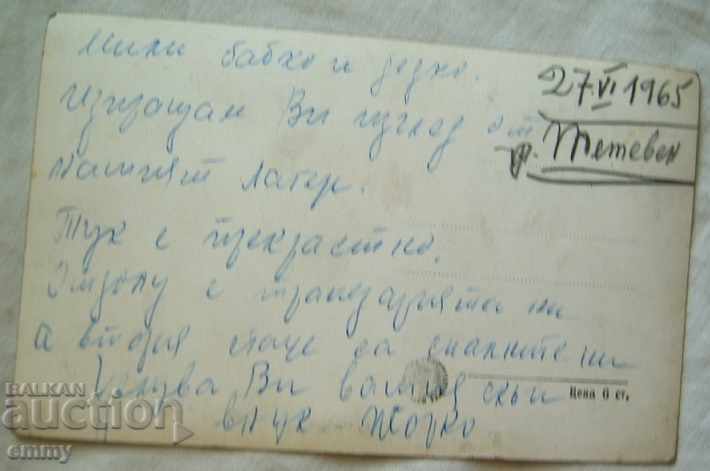 Мили бабхо и дедхо.
27 VI 1965
Изпращам Ви изглед от
гр. Тетевен
нашият лагер.
Тук е прекрастно.
Отдолу е трапезарията ни
а втория етаж са спалните ни
Целува Ви вашия скъп
Цена 6 ст.
внук Жорко
BALKAN
auction
emmy